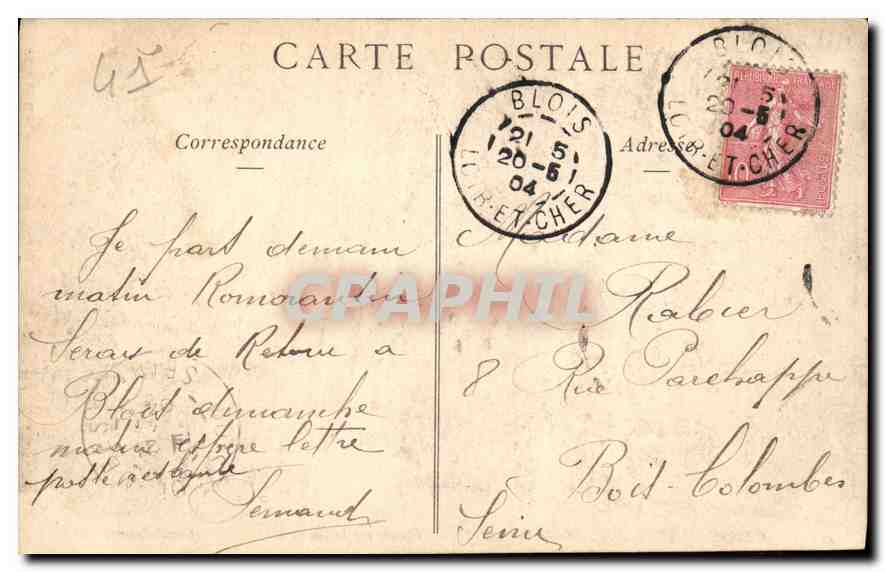 45
CARTE POSTALE
Correspondance
Adresse
BLOIS
21 5
20-5
04
LOIR-ET-CHER
BLOIS
21 5
20-5
04
LOIR-ET-CHER
REPUBLIQUE FRANCAISE
POSTES
Je part demain
matin Romorantin
Serais de Retour a
Blois dimanche
matin espere lettre
poste restante
Fernand
Madame
Rabier
8 Rue Parchappe
Bois-Colombes
Seine
CPAPHIL